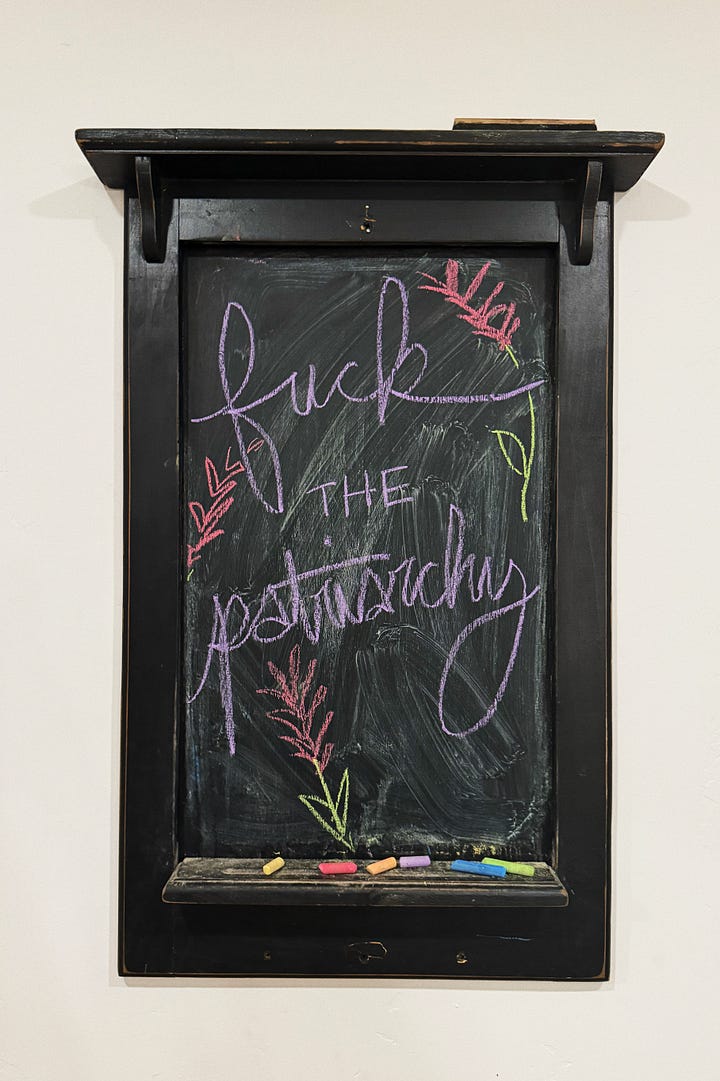 fuck
THE
patriarchy